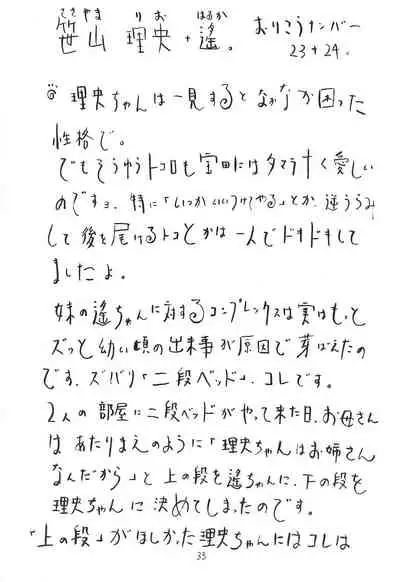 ささやま りお はるか
笹山 理央+遙。 おりこうナンバー
23+24。
理央ちゃんは一見するとなかなか困った
性格で。
でもそうゆうトコロも宝田にはタマラナく愛しい
のですョ。特に「いつかいいつけてやる」とか、逆うらみ
して後を尾けるトコとかは一人でドキドキして
ましたよ。
妹の遙ちゃんに対するコンプレックスは実はもっと
ズッと幼い頃の出来事が原因で芽ばえたの
です。ズバリ「二段ベッド」。コレです。
2人の部屋に二段ベッドがやって来た日、お母さん
はあたりまえのように「理央ちゃんはお姉さん
なんだから」と上の段を遙ちゃんに、下の段を
理央ちゃんに決めてしまったのです。
「上の段」がほしかった理央ちゃんにはコレは
33